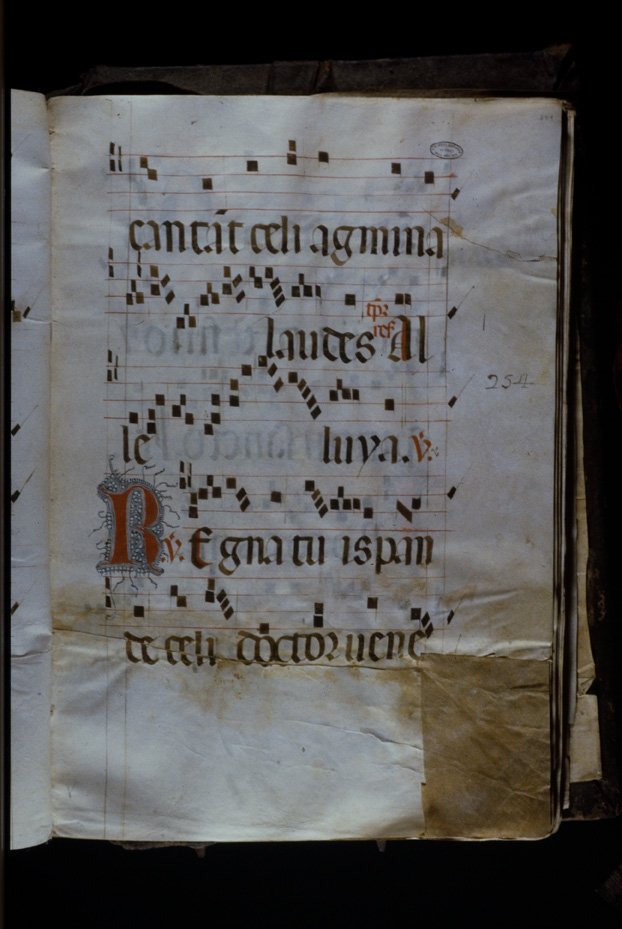 cantāt celi agmina
laudes tp̄r res Al
le luya. ℣.
R ℣. Egnatū ispān
de celi doctor uene
254